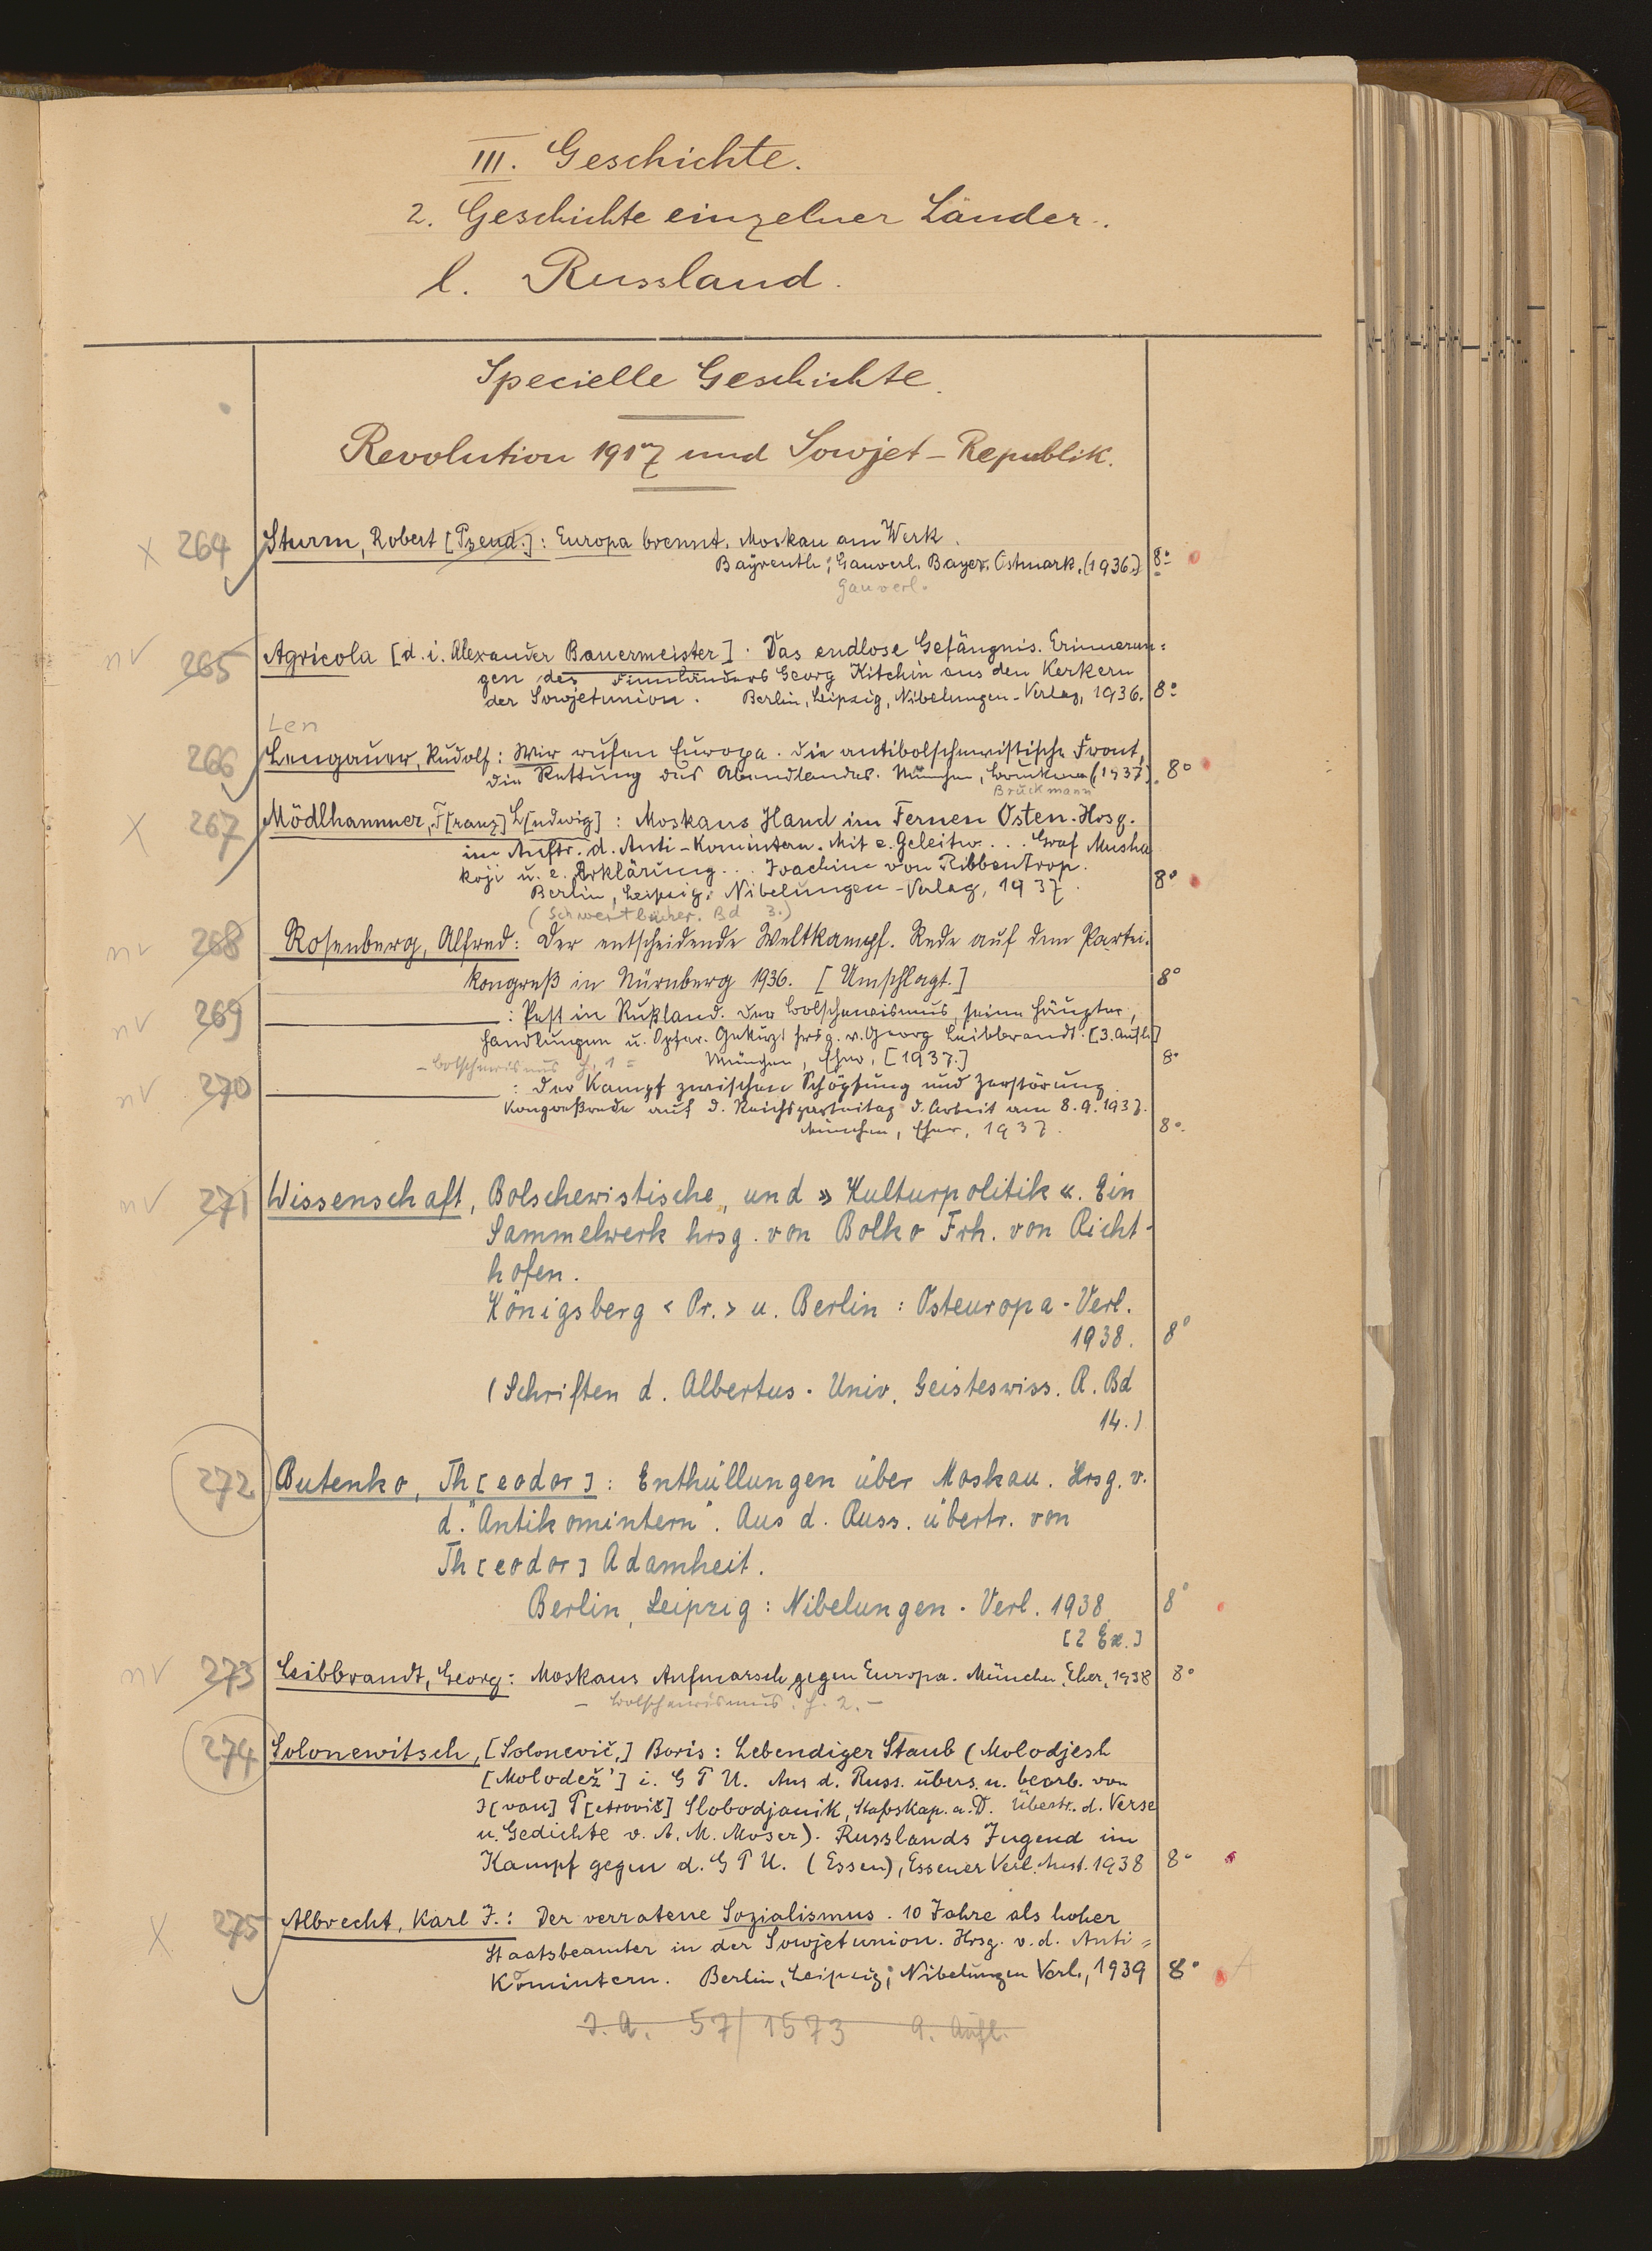 III. Geschichte.
2. Geschichte einzelner Länder.
l. Russland.
Specielle Geschichte.
Revolution 1917 und Sowjet-Republik.
x 264 Sturm, Robert [Pseud.]: Europa brennt. Moskau am Werk.
Bayreuth: Gauverl. Bayer. Ostmark. (1936.) 8°
Gauverl.
nv 265 Agricola [d. i. Alexander Bauermeister]. Das endlose Gefängnis. Erinnerun=
gen des Finnländers Georg Kitchin aus den Kerkern
der Sowjetunion. Berlin, Leipzig, Nibelungen-Verlag, 1936. 8°
Len
266 Lengauer, Rudolf: Wir rufen Europa. Die antibolschewistische Front,
die Rettung des Abendlandes. München, Bruckmann (1937). 8°
Bruckmann
X 267 Mödlhammer, F[ranz] L[udwig]: Moskaus Hand im Fernen Osten. Hrsg.
im Auftr. d. Anti-Komintern. Mit e. Geleitw... Graf Musha
koji u. e. Erklärung... Joachim von Ribbentrop.
Berlin, Leipzig: Nibelungen-Verlag, 1937. 8°
(Schwertbücher. Bd 3.)
nv 268 Rosenberg, Alfred: Der entscheidende Weltkampf. Rede auf dem Partei-
kongreß in Nürnberg 1936. [Umschlagt.] 8°
nv 269 : Pest in Rußland. Der Bolschewismus, seine Häupter,
Handlungen u. Opfer. Gekürzt hrsg. v. Georg Leibbrandt. [3. Aufl.]
München, Eher, [1937.] 8°
- Bolschewismus H. 1 =
nv 270 : Der Kampf zwischen Schöpfung und Zerstörung.
Kongreßrede auf d. Reichsparteitag d. Arbeit am 8.9.1937.
München, Eher, 1937. 8°
nv 271 Wissenschaft, Bolschewistische, und »Kulturpolitik«. Ein
Sammelwerk hrsg. von Bolko Frh. von Richt-
hofen.
Königsberg <Pr.> u. Berlin: Osteuropa-Verl.
1938. 8°
(Schriften d. Albertus-Univ. Geisteswiss. R. Bd
14.)
272 Butenko, Th[eodor]: Enthüllungen über Moskau. Hrsg. v.
d. "Antikomintern". Aus d. Russ. übertr. von
Th[eodor] Adamheit.
Berlin, Leipzig: Nibelungen-Verl. 1938. 8°
[2 Ex.]
nv 273 Leibbrandt, Georg: Moskaus Aufmarsch gegen Europa. München, Eher, 1938 8°
- Bolschewismus. H. 2. -
274 Solonewitsch, [Solonevič,] Boris: Lebendiger Staub (Molodjesh
[Molodež'] i. G P U. Aus d. Russ. übers. u. bearb. von
I[van] P[etrovič] Slobodjanik, Stabskap. a. D. Übertr. d. Verse
u. Gedichte v. A. M. Moser). Russlands Jugend im
Kampf gegen d. G P U. (Essen), Essener Verl. Anst. 1938 8°
X 275 Albrecht, Karl I.: Der verratene Sozialismus. 10 Jahre als hoher
Staatsbeamter in der Sowjetunion. Hrsg. v. d. Anti=
Komintern. Berlin, Leipzig: Nibelungen Verl., 1939 8°
57/1573 9. Aufl.